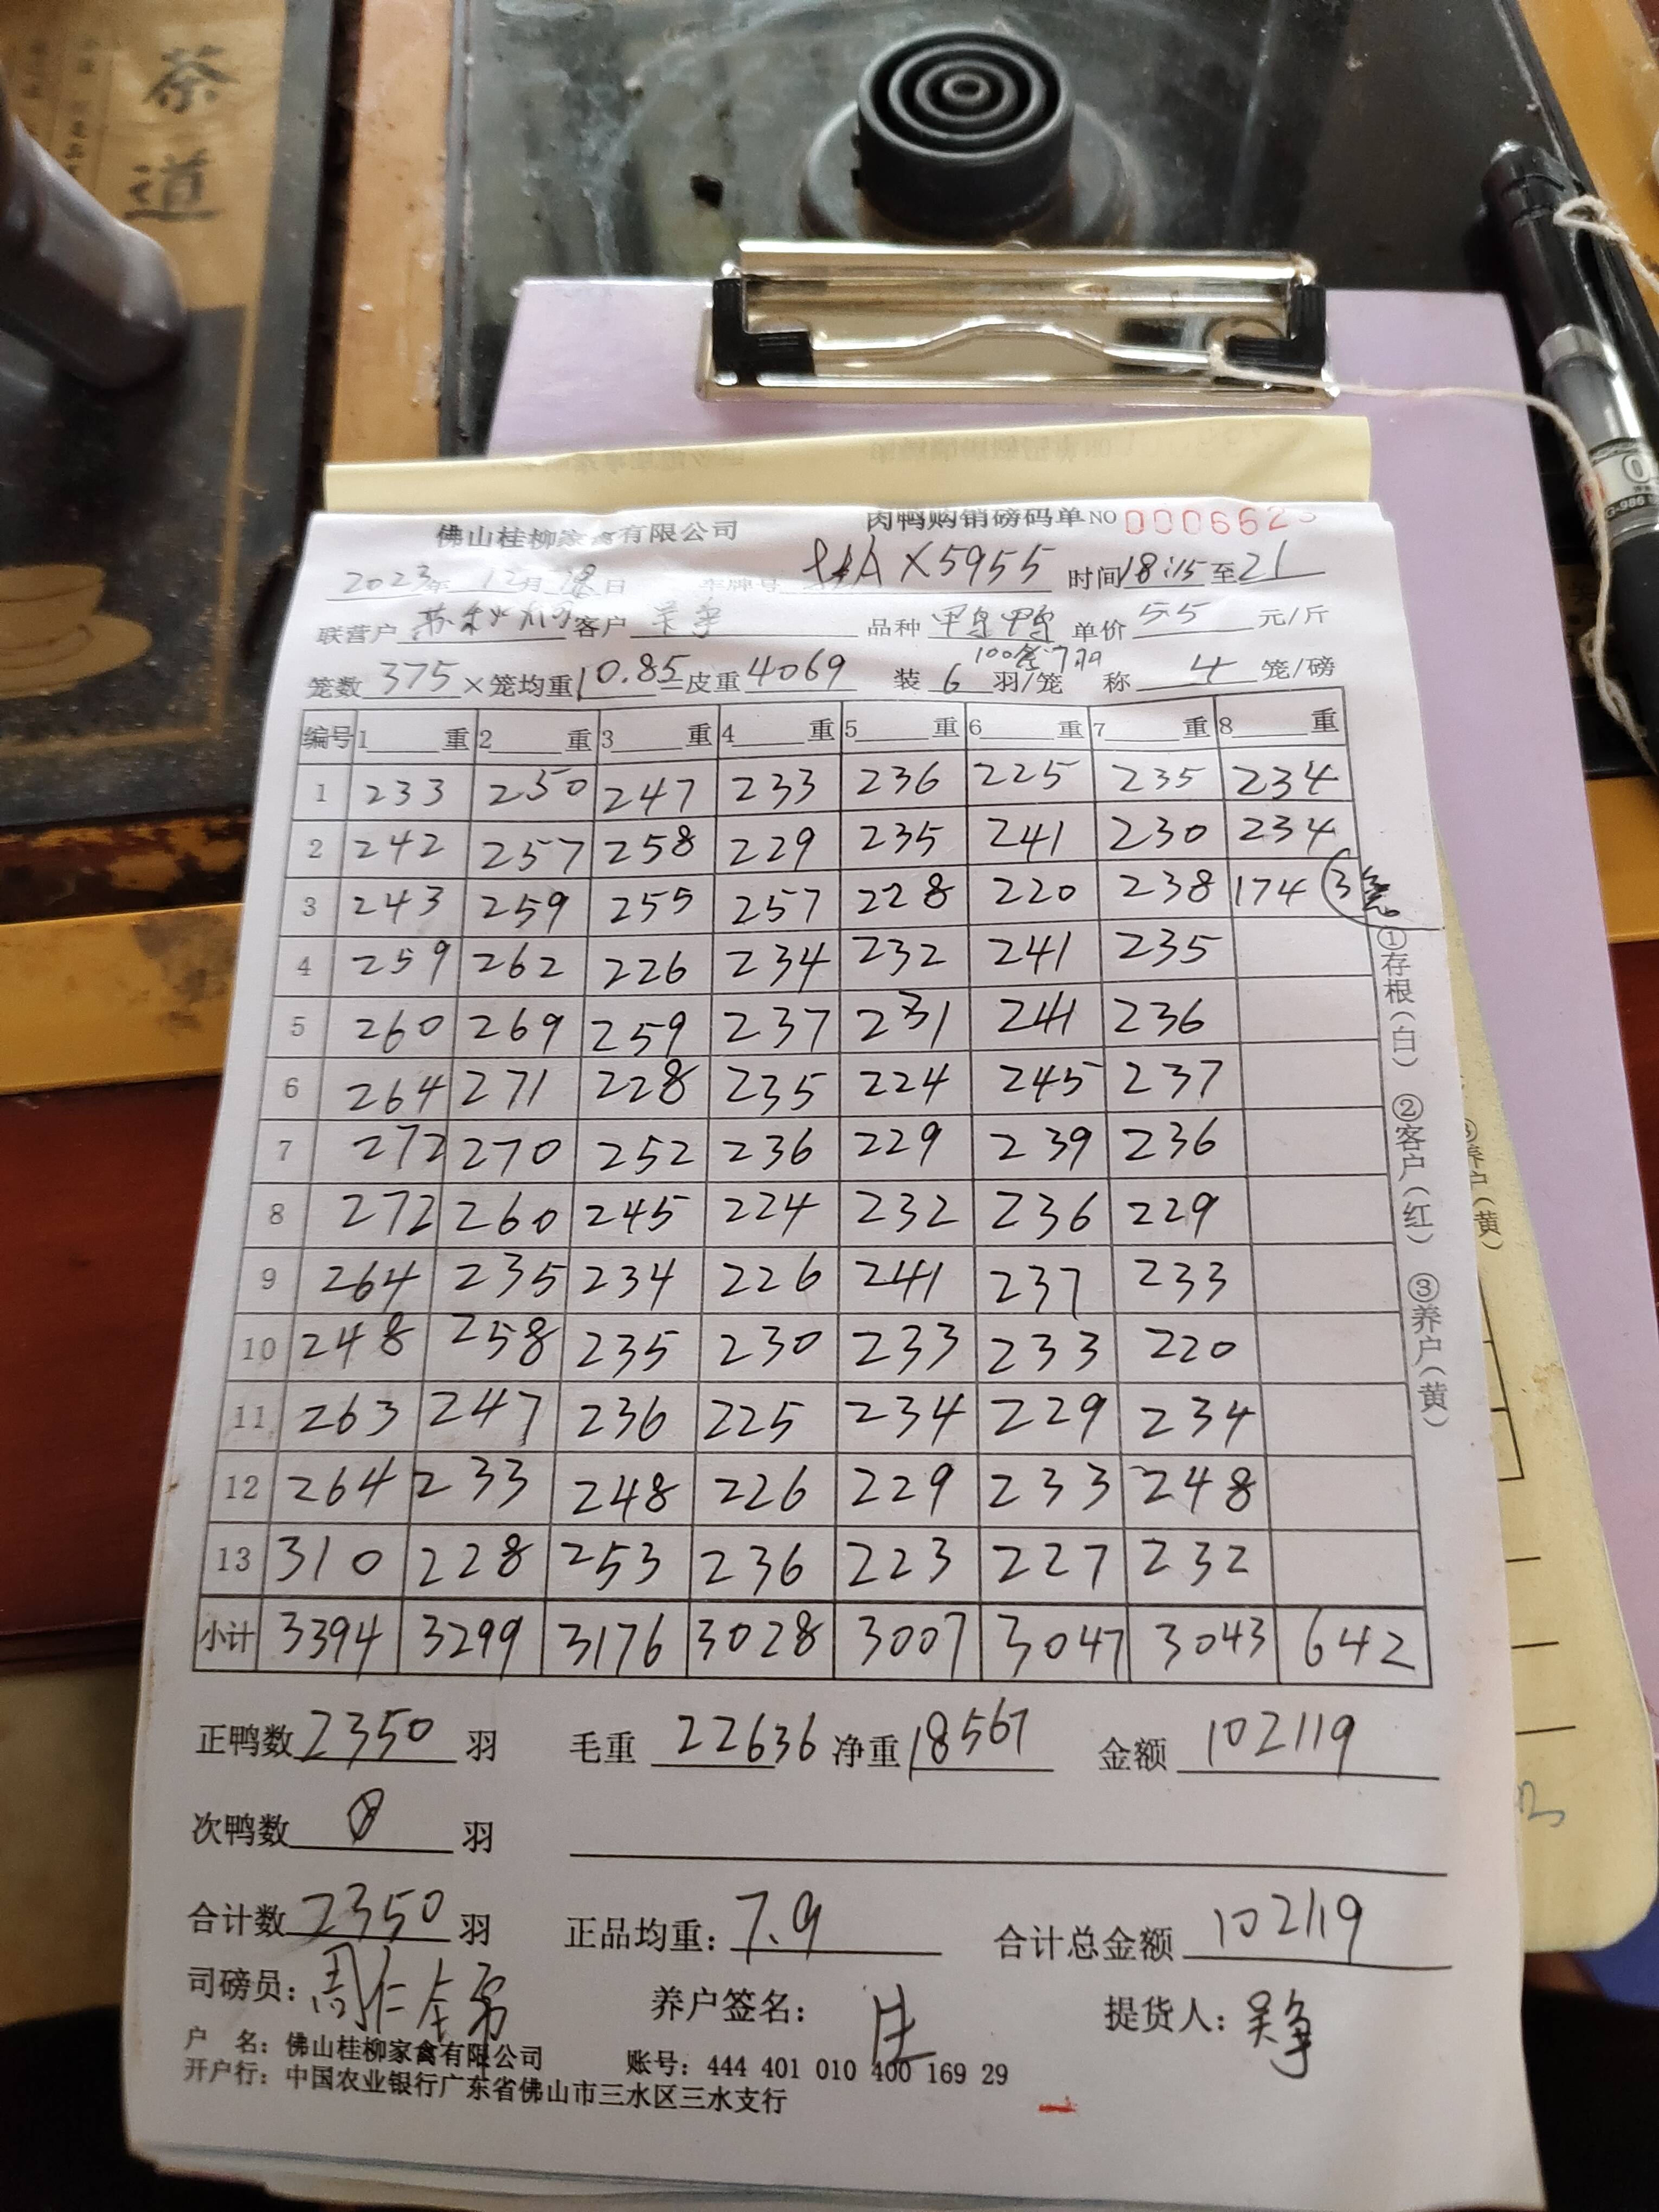 茶
道
佛山桂柳家禽有限公司 肉鸭购销磅码单NO 0006623
2023年 12月 18日 车牌号 X5955 时间18:15至21
联营户 客户 吴争 品种 单价 5.5 元/斤
100笼7羽
笼数 375 ×笼均重 10.85 =皮重 4069 装 6 羽/笼 称 4 笼/磅
编号 1 重 2 重 3 重 4 重 5 重 6 重 7 重 8 重
1 233 250 247 233 236 225 235 234
2 242 257 258 229 235 241 230 234
3 243 259 255 257 228 220 238 174 3笼
4 259 262 226 234 232 241 235
5 260 269 259 237 231 241 236
6 264 271 228 235 224 245 237
7 272 270 252 236 229 239 236
8 272 260 245 224 232 236 229
9 264 235 234 226 241 237 233
10 248 258 235 230 233 233 220
11 263 247 236 225 234 229 234
12 264 233 248 226 229 233 248
13 310 228 253 236 223 227 232
小计 3394 3299 3176 3028 3007 3047 3043 642
正鸭数 2350 羽 毛重 22636 净重 18567 金额 102119
次鸭数 0 羽
合计数 2350 羽 正品均重: 7.9 合计总金额 102119
司磅员: 周仁 养户签名: 提货人: 吴争
户 名: 佛山桂柳家禽有限公司 账号: 444 401 010 400 169 29
开户行: 中国农业银行广东省佛山市三水区三水支行
①存根(白) ②客户(红) ③养户(黄)
③养户(黄)